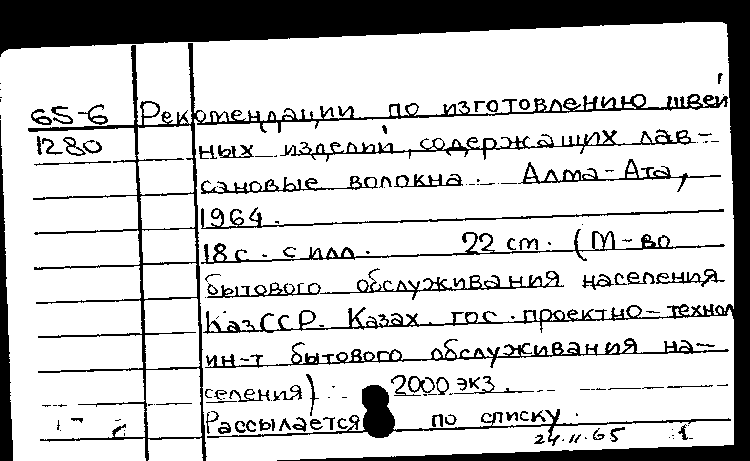 65-6 Рекомендации по изготовлению швей
1280 ных изделий, содержащих лав-
сановые волокна. Алма-Ата,
1964.
18 с. с илл. 22 cm. (М-во
бытового обслуживания населения
КазССР. Казах. гос. проектно-технол
ин-т бытового обслуживания на-
селения) 2000 экз.
Рассылается по списку.
24.11.65 1